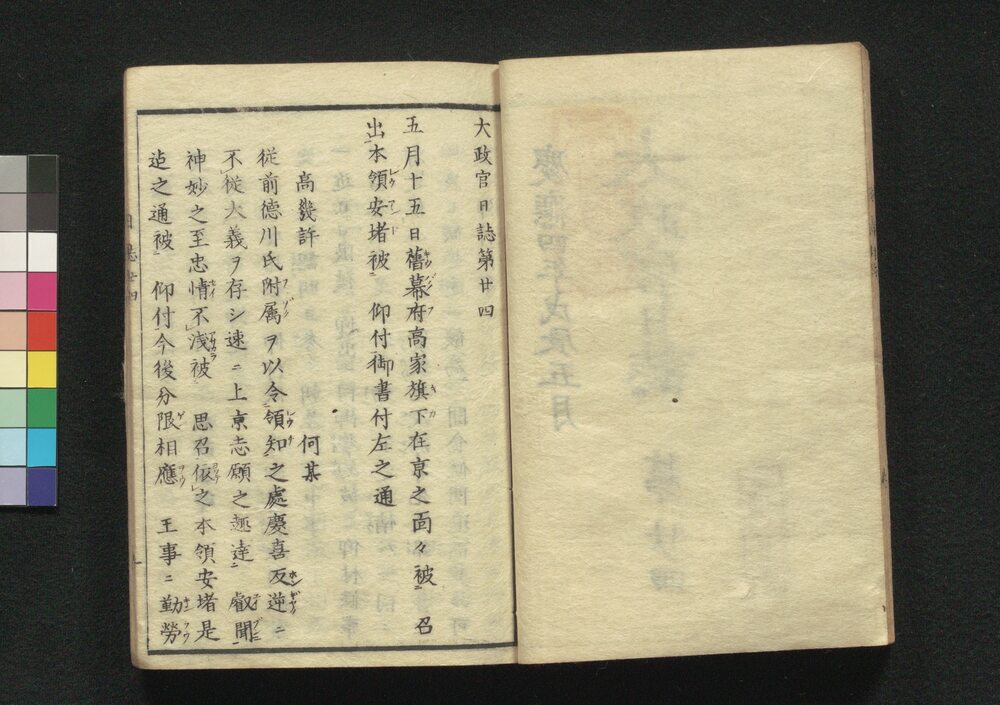 大政官日誌第廿四
五月十五日舊幕府高家旗下在京之面々被 召
出本領安堵被 仰付御書付左之通
高幾許 何某
従前徳川氏附属ヲ以令領知之處慶喜反逆ニ
不従大義ヲ存シ速ニ上京志願之趣達 叡聞
神妙之至忠情不淺被 思召依之本領安堵是
迠之通被 仰付今後分限相應 王事ニ勤勞